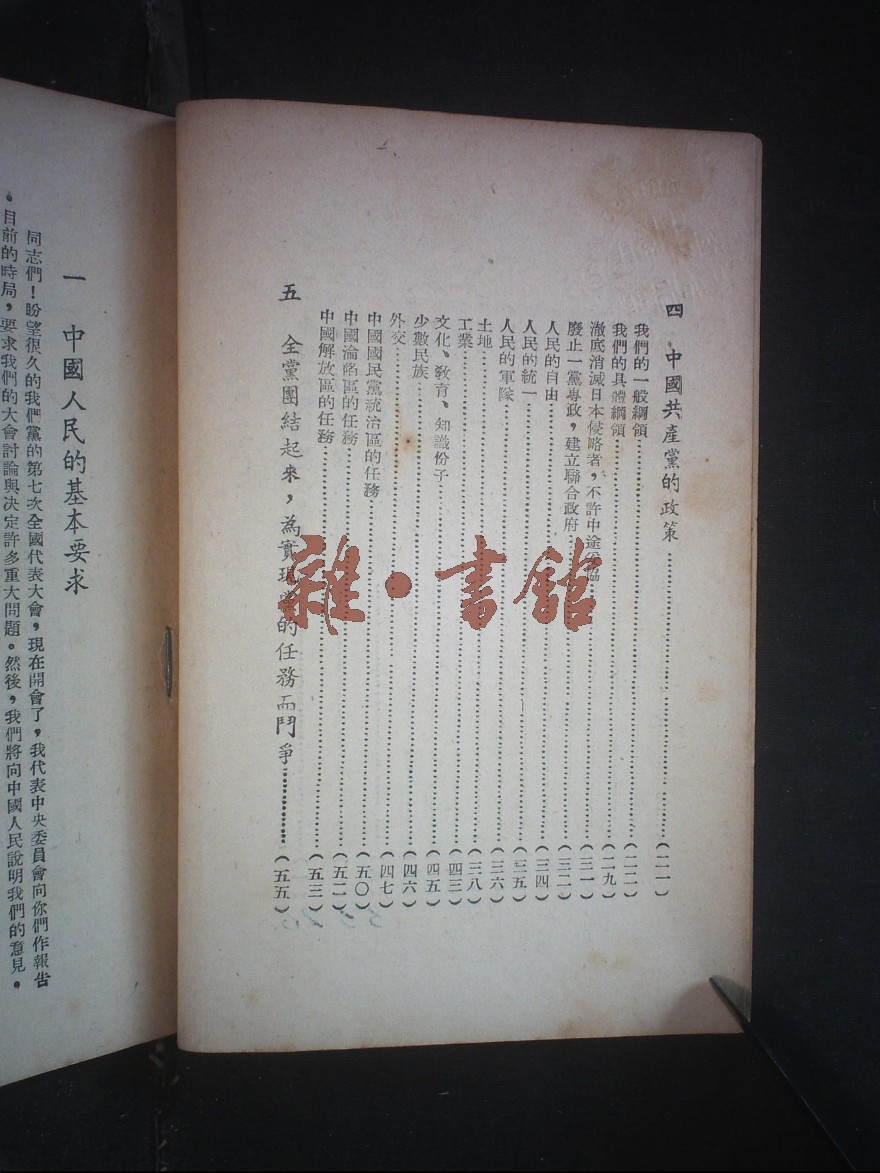 四 中國共產黨的政策……(二一)
我們的一般綱領……(二二)
我們的具體綱領……(二九)
澈底消滅日本侵略者，不許中途妥協……(三一)
廢止一黨專政，建立聯合政府……(三二)
人民的自由……(三四)
人民的統一……(三五)
人民的軍隊……(三六)
土地……(三八)
工業……(四三)
文化、敎育、知識份子……(四五)
少數民族……(四六)
外交……(四七)
中國國民黨統治區的任務……(五〇)
中國淪陷區的任務……(五二)
中國解放區的任務……(五三)
五 全黨團結起來，為實現黨的任務而鬥爭……(五五)
雜·書館
一 中國人民的基本要求
同志們！盼望很久的我們黨的第七次全國代表大會，現在開會了，我代表中央委員會向你們作報告
。目前的時局，要求我們的大會討論與決定許多重大問題。然後，我們將向中國人民說明我們的意見。